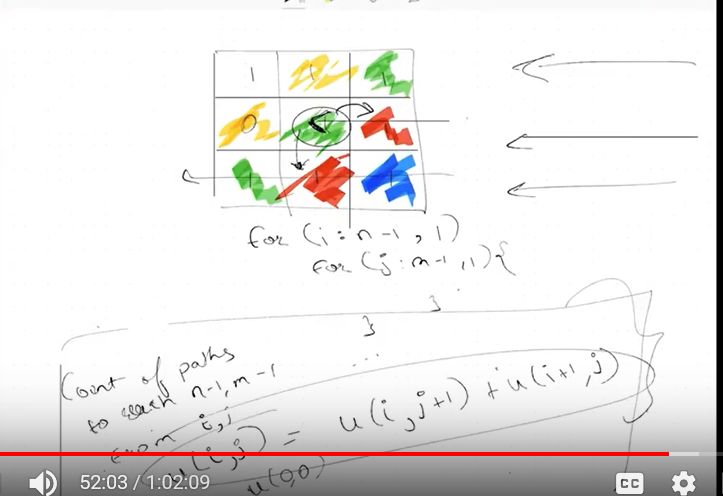 1
1
1
0
1
1
for (i : n-1, 1)
for (j : m-1, 1) {
}
}
...
Count of paths
to reach n-1, m-1
from i, j
u(i,j) = u(i, j+1) + u(i+1, j)
u(0,0)
52:03 / 1:02:09
CC